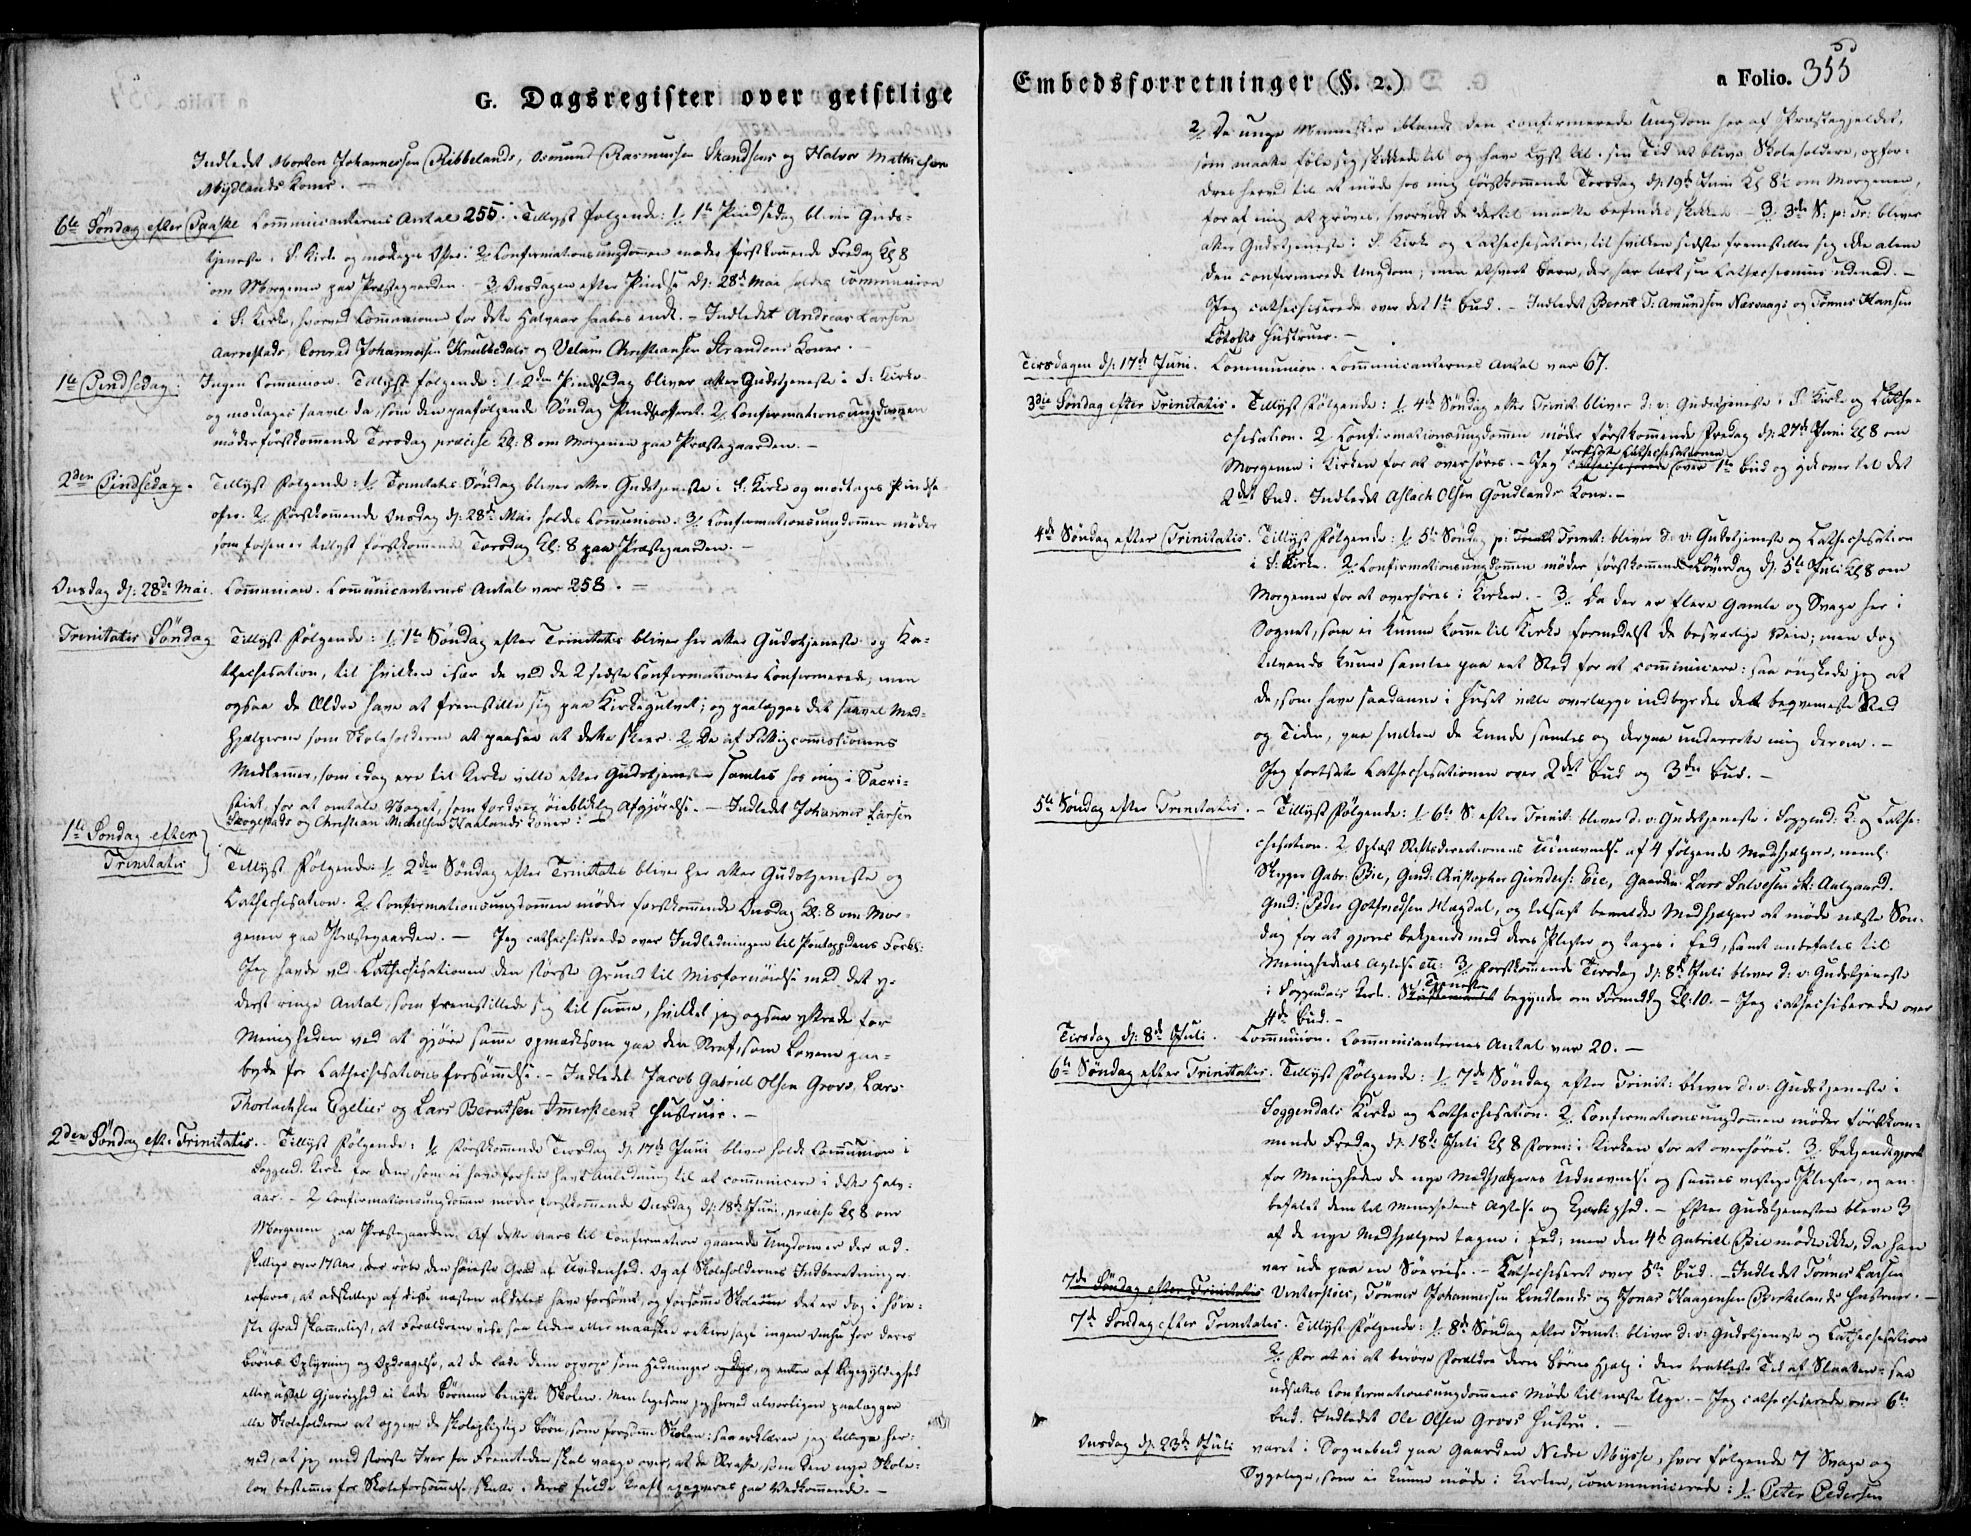 G. Dagsregister over geistlige
Indledet Morten Johannessen Ribbelands, Osmund Rasmusen Skandsens og Halvor Mathiesen
Myslands Koner. —
6te Søndag efter Paaske Communicanternes Antal 255. Tillyst følgende: 1. 1ste Pindsedag bliver Guds-
tjeneste i S: Kirke og modtages Offer. 2. Confirmationsungdommen møder førstkommende Fredag Kl 8
om Morgenen paa Præstegaarden. 3. Onsdagen efter Pindse d: 28de Mai holdes Communion
i S: Kirke, hvorved Communionen for dette Halvaar haabes endt. – Indledet Andreas Larsen
Aarrestads, Conrad Johannesen Knubedals og Velum Christiansen Strandens Koner.
1ste Pindsedag. Ingen Communion. Tillyst følgende: 1. 2den Pindsedag bliver atter Gudstjeneste i S: Kirke
og modtages saavel da, som den paafølgende Søndag Pindseofferet. 2. Confirmationsungdommen
møder førstkommende Torsdag præcise Kl: 8 om Morgenen paa Præstegaarden. —
2den Pindsedag. Tillyst Følgende: 1. Trinitatis Søndag bliver atter Gudstjeneste i S: Kirke og modtages Pindse
offer. 2. Førstkommende Onsdag d: 28de Mai holdes Communion. 3. Confirmationsungdommen møder
som forhen er tillyst førstkommende Torsdag Kl: 8 paa Præstegaarden. —
Onsdag d: 28de Mai. Communion. Communicanternes Antal var 258. —
Trinitatis Søndag Tillyst Følgende: 1. 1ste Søndag efter Trinitatis bliver her atter Gudstjeneste og Ka-
thechisation, til hvilken især de ved de 2 sidste Confirmationer Confirmerede, men
ogsaa de Ældre have at fremstille sig paa Kirkegulvet; og paalægges det saavel Med-
hjælperne som Skoleholderne at paasee at dette skeer. 2. De af Fattigcommissionens
Medlemmer, som idag ere til Kirke ville efter Gudstjenesten samles hos mig i Sacri-
stiet, for at omtale Noget, som fordrer øieblikkelig Afgjørelse. – Indledet Johannes Larsen
Skogestads og Christian Michelsen Haalands Koner. —
1ste Søndag efter
Trinitatis Tillyst Følgende: 1. 2den Søndag efter Trinitatis bliver her atter Gudstjeneste og
Cathechisation. 2. Confirmationsungdommen møder førstkommende Onsdag Kl: 8 om Mor-
genen paa Præstegaarden. — Jeg cathechiserede over Indledningen til Pontoppidans Forkl:
Jeg havde ved Cathechisationen den største Grund til Misfornøielse med det y-
derst ringe Antal, som fremstillede sig til samme, hvilket jeg ogsaa yttrede for
Menigheden ved at gjøre samme opmærksom paa den Straf, som Loven paa-
byde for Cathechisations forsømmelse. – Indledet Jacob Gabriel Olsen Groos, Lars
Thorlachsen Egelies og Lars Berntsen Immersteens Hustruer. —
2den Søndag eft: Trinitatis. – Tillyst Følgende: 1. Førstkommende Tirsdag d: 17de Juni bliver holdt Communion i
Soggend: Kirke for dem, som ei have forhen havt Anledning til at communicere i dette Halv-
aar. – 2. Confirmationsungdommen møder førstkommende Onsdag d: 18de Juni, præcise Kl 8 om
Morgenen paa Præstegaarden. Af dette Aars til Confirmation gaaende Ungdom er der ad-
skillige over 17 Aar, der røbe den høieste Grad af Uvidenhed. Og af Skoleholdernes Indberetninger
erfares, at adskillige af disse næsten aldeles have forsømt, og forsømme Skolerne. Det er dog i høie-
ste Grad skammeligt, at Forældrene vise saa liden eller maaskee rettere sagt ingen Omhu for deres
Børns Oplysning og Opdragelse, at de lade dem opvoxe som Hedninger, og enten af Ligegyldighed
eller ussel Gjerrighed ei lade Børnene benytte Skolen. Men ligesom jeg herved alvorligen paalægger
alle Skoleholderne at opgive de skolepligtige Børn, som forsømme Skolen: saa erklærer jeg tillige her-
ved, at jeg med største Iver for Fremtiden skal vaage over, at de Straffe, som den nye Skole-
lov bestemmer for Skoleforsømmelse, skulle i deres fulde Kraft exeqveres paa Vedkommende. —
Embedsforretninger (§. 2.)
a Folio. 355
2. De unge Mennesker iblandt den confirmerede Ungdom her af Præstegjeldet,
som maatte føle sig skikkede til og have Lyst til i sin Tid at blive Skoleholdere, opfor-
dres herved til at møde hos mig førstkommende Torsdag d: 19de Juni Kl 8½ om Morgenen,
for af mig at prøves, hvorvidt de dertil maatte befindes skikkede. – 3. 3die S: p: Tr: bliver
atter Gudstjeneste i S: Kirke og Cathechisation, til hvilken sidste fremstiller sig ikke alene
den confirmerede Ungdom; men ethvert Barn, der har lært sin Cathechismus udenad. –
Jeg cathechiserede over det 1ste Bud. – Indledet Bernt T: Amundsen Næsvaags og Tønnes Hansen
Hustruer. —
Tirsdagen d: 17de Juni. Communion. Communicanternes Antal var 67.
3die Søndag efter Trinitatis. Tillyst Følgende: 1. 4de Søndag efter Trinit: bliver d: v: Gudstjeneste i S: Kirke og Cathe-
chisation. 2. Confirmationsungdommen møder førstkommende Fredag d: 27de Juni Kl 8 om
Morgenen i Kirken for at overhøres. – Jeg fortsatte Cathechisationen over 1ste Bud og gik over til det
2det Bud. Indledet Aslach Olsen Goudlands Kone. —
4de Søndag efter Trinitatis. Tillyst Følgende: 1. 5te Søndag p: Trinit: bliver d: v: Gudstjeneste og Cathechisation
i S: Kirke. 2. Confirmationsungdommen møder førstkommende Løverdag d: 5te Juli Kl 8 om
Morgenen for at overhøres i Kirken. – 3. Da der er flere Gamle og Svage her i
Sognet, som ei kunne komme til Kirke formedelst de besværlige Veie; men dog
kunne samles paa eet Sted for at communicere: saa ønskede jeg at
de, som have saadanne i Huset ville overlægge indbyrdes det beqvemeste Sted
og Tiden, paa hvilken de kunde samles og derpaa underrette mig derom. —
Jeg fortsatte Cathechisationen over 2det Bud og 3die Bud. —
5te Søndag efter Trinitatis. – Tillyst Følgende: 1. 6te S: efter Trinit: bliver d: v: Gudstjeneste i Soggend: K: og Cathe-
chisation. 2. Oplæst Stiftsdirectionens Udnævnelse af 4 følgende Medhjælpere, neml:
Skipper Gabr: Bie, Gmd: Christopher Gunders: Eie, Gaardm: Lars Salvesen Aalgaard.
Gmd: Peder Gotfriedsen Hægdal, og tilsagt bemeldte Medhjælpere at møde næste Søn-
dag for at gjøres bekjendt med deres Pligter og tages i Eed, samt anbefales til
Menighedens Agtelse etc: 3. Førstkommende Tirsdag d: 8de Juli bliver d: v: Gudstjeneste
i Soggendals Kirke. Tjenesten begynder om Formiddag Kl: 10. – Jeg cathechiserede over
4de Bud. –
Tirsdag d: 8de Juli. Communion. Communicanternes Antal var 20. —
6te Søndag efter Trinitatis. Tillyst Følgende: 1. 7de Søndag efter Trinit: bliver d: v: Gudstjeneste i
Soggendals Kirke og Cathechisation. 2. Confirmationsungdommen møder førstkom-
mende Fredag d: 18de Juli Kl 8 Form: i Kirken for at overhøres. 3. Bekjendtgjort
for Menigheden de nye Medhjælperes Udnævnelse og sammes vigtige Pligter, og an-
befalet dem til Menighedens Agtelse og Kjærlighed. – Efter Gudstjenesten bleve 3
af de nye Medhjælpere tagne i Eed; men den 4de Gabriel Bie mødte ikke, da han
var ude paa en Søereise. – Cathechiseret over 5te Bud. – Indledet Tønnes Larsen
7de Søndag efter Trinitatis Vintersties, Tønnes Johannessen Lindlands og Jonas Haagensen Birkelands Hustruer. —
7de Søndag efter Trinitatis. Tillyst Følgende: 1. 8de Søndag efter Trinit: bliver d: v: Gudstjeneste og Cathechisation
2. For at ei at berøve Forældre deres Børns Hjelp i den travleste Tid af Slaatten: saa
udsættes Confirmationsungdommens Møde til næste Uge. – Jeg cathechiserede over 6te
Bud. Indledet Ole Olsen Groos Hustru. —
Onsdag d: 23de Juli været i Sognebud paa Gaarden Nedre Mysse, hvor følgende 7 Svage og
Sygelige, som ei kunne møde i Kirken, communicerede: 1. Peter Pedersen